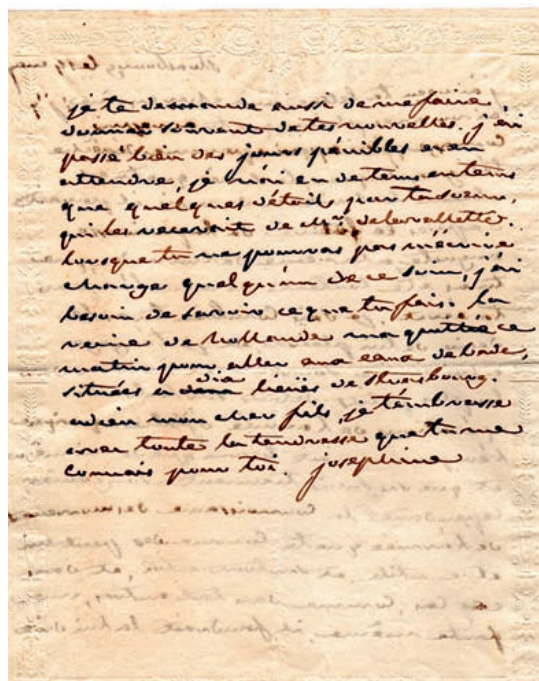 je te demande aussi de me faire
donner souvent de tes nouvelles. j'ai
passé bien des jours pénibles a en
attendre, je n'ai eu de tems en tems
que quelques détails par ta soeur,
qui les recevoit de Mr. de lavallette.
lorsque tu ne pourras pas m'écrire
charge quelqu'un de ce soin, j'ai
besoin de savoir ce que tu fais. la
reine de hollande m'a quittée ce
matin pour aller aux eaux de bade,
situées a dix lieües de Strasbourg.
adieu mon cher fils, je t'embrasse
avec toute la tendresse que tu me
connais pour toi. joséphine